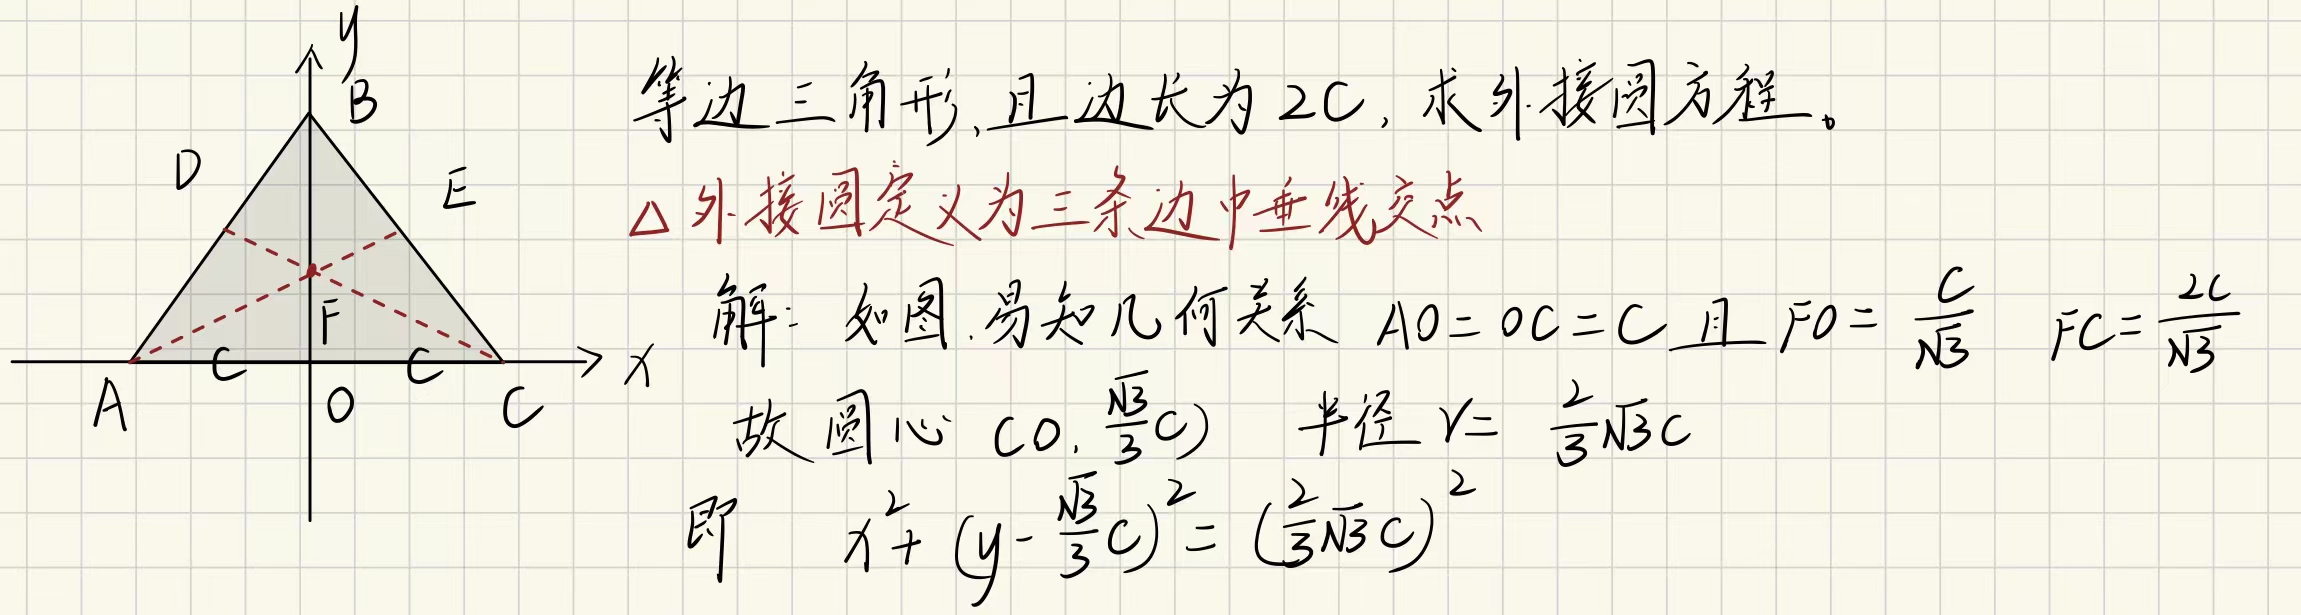 y
B
D
E
F
C
C
x
A
O
C
等边三角形,且边长为2C,求外接圆方程。
△外接圆定义为三条边中垂线交点
解:如图,易知几何关系 AO=OC=C且FO=C/√3 FC=2C/√3
故圆心(0,√3/3C) 半径r=2/3√3C
即 x²+(y-√3/3C)²=(2/3√3C)²